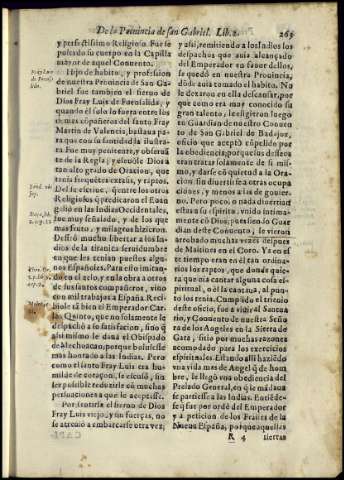 De la Prouincia de san Gabriel. Lib. 2. 263
y perfectissimo Religioso. Fue se
pultado su cuerpo en la Capilla
mayor de aquel Conuento.
Hijo de habito, y profession
de nuestra Prouincia de San Ga-
briel fue tambien el sieruo de
Dios Fray Luis de Fuensalida, y
quando èl solo lo fuera entre los
mas compañeros del santo Fray
Martin de Valencia, bastaua pa-
ra que con su santidad la ilustra-
ra. Fue muy penitente, y obserua-
te de la Regla, y eleuòle Dios a
tan alto grado de Oracion, que
tenia frequētes extasis, y raptos.
Del se escriue, q̃ entre los otros
Religiosos q̃ predicaron el Euan
gelio en las Indias Occidentales,
fue muy señalado, y de los que
mas fruto, y milagros hizieron.
Desseò mucho libertar a los In-
dios de la tiranica seruidumbre
en que les tenian puestos algu-
nos Españoles. Para esto imitan-
do en el zelo, y en la obra a otros
de sus santos compañeros, vino
con mil trabajos a España. Reci-
biòle tã bien el Emperador Car-
los Quinto, que no solamente le
despachò a su satisfacion, sino q̃
assi mismo le daua el Obispado
de Mechoacan, porque boluiesse
mas honrado a las Indias. Pero
como el santo Fray Luis era hu-
milde de coraçon, se escusò, sin
ser possible reduzirle cõ muchas
persuasiones a que le aceptasse.
Por sentirse el sieruo de Dios
Fray Luis viejo, y sin fuerças, no
se atreuiò a embarcarse otra vez;
y assi, remitiendo a los Indios los
despachos que auia alcançado
del Emperador en fauor dellos,
se quedò en nuestra Prouincia,
dõde auia tomado el habito. No
le dexaron en ella descansar, por
que como era muy conocido su
gran talento, le eligieron luego
en Guardian de nuestro Conuēto
de San Gabriel de Badajoz,
oficio que aceptò cōpelido por
la obediencia, porque sus desseos
eran tratar solamente de si mis-
mo, y darse cõ quietud a la Ora-
cion sin diuertirse a otras ocupa
ciones, y menos a las de gouier-
no. Pero poco, o nada diuertieron
estas su espiritu, vnido intima-
mente cõ Dios, pues siendo Guar
dian deste Conuento, se vieron
arrobado muchas vezes despues
de Maitines en el Coro. Y a en es
te tiempo eran en èl tan ordina
rios los raptos, que donde quie-
ra que oìa cantar alguna cosa es-
piritual, o èl la cantaua, al pun-
to los tenia. Cumplido el trienio
deste oficio, fue a viuir al Santua
rio, y Conuento de nuestra Seño
ra de los Angeles en la Sierra de
Gata, sitio por muchas razones
acomodado para los exercicios
espirituales. Estando alli haziēdo
vna vida mas de Angel q̃ de hom
bre, le llegò vna obediencia del
Prelado General, en q̃ le mandaua
se partiesse a las Indias. Entiēde-
se q̃ fue por ordē del Emperador
y a peticion de los Frailes de la
Nueua España, porque aquellas
R 4 tierras